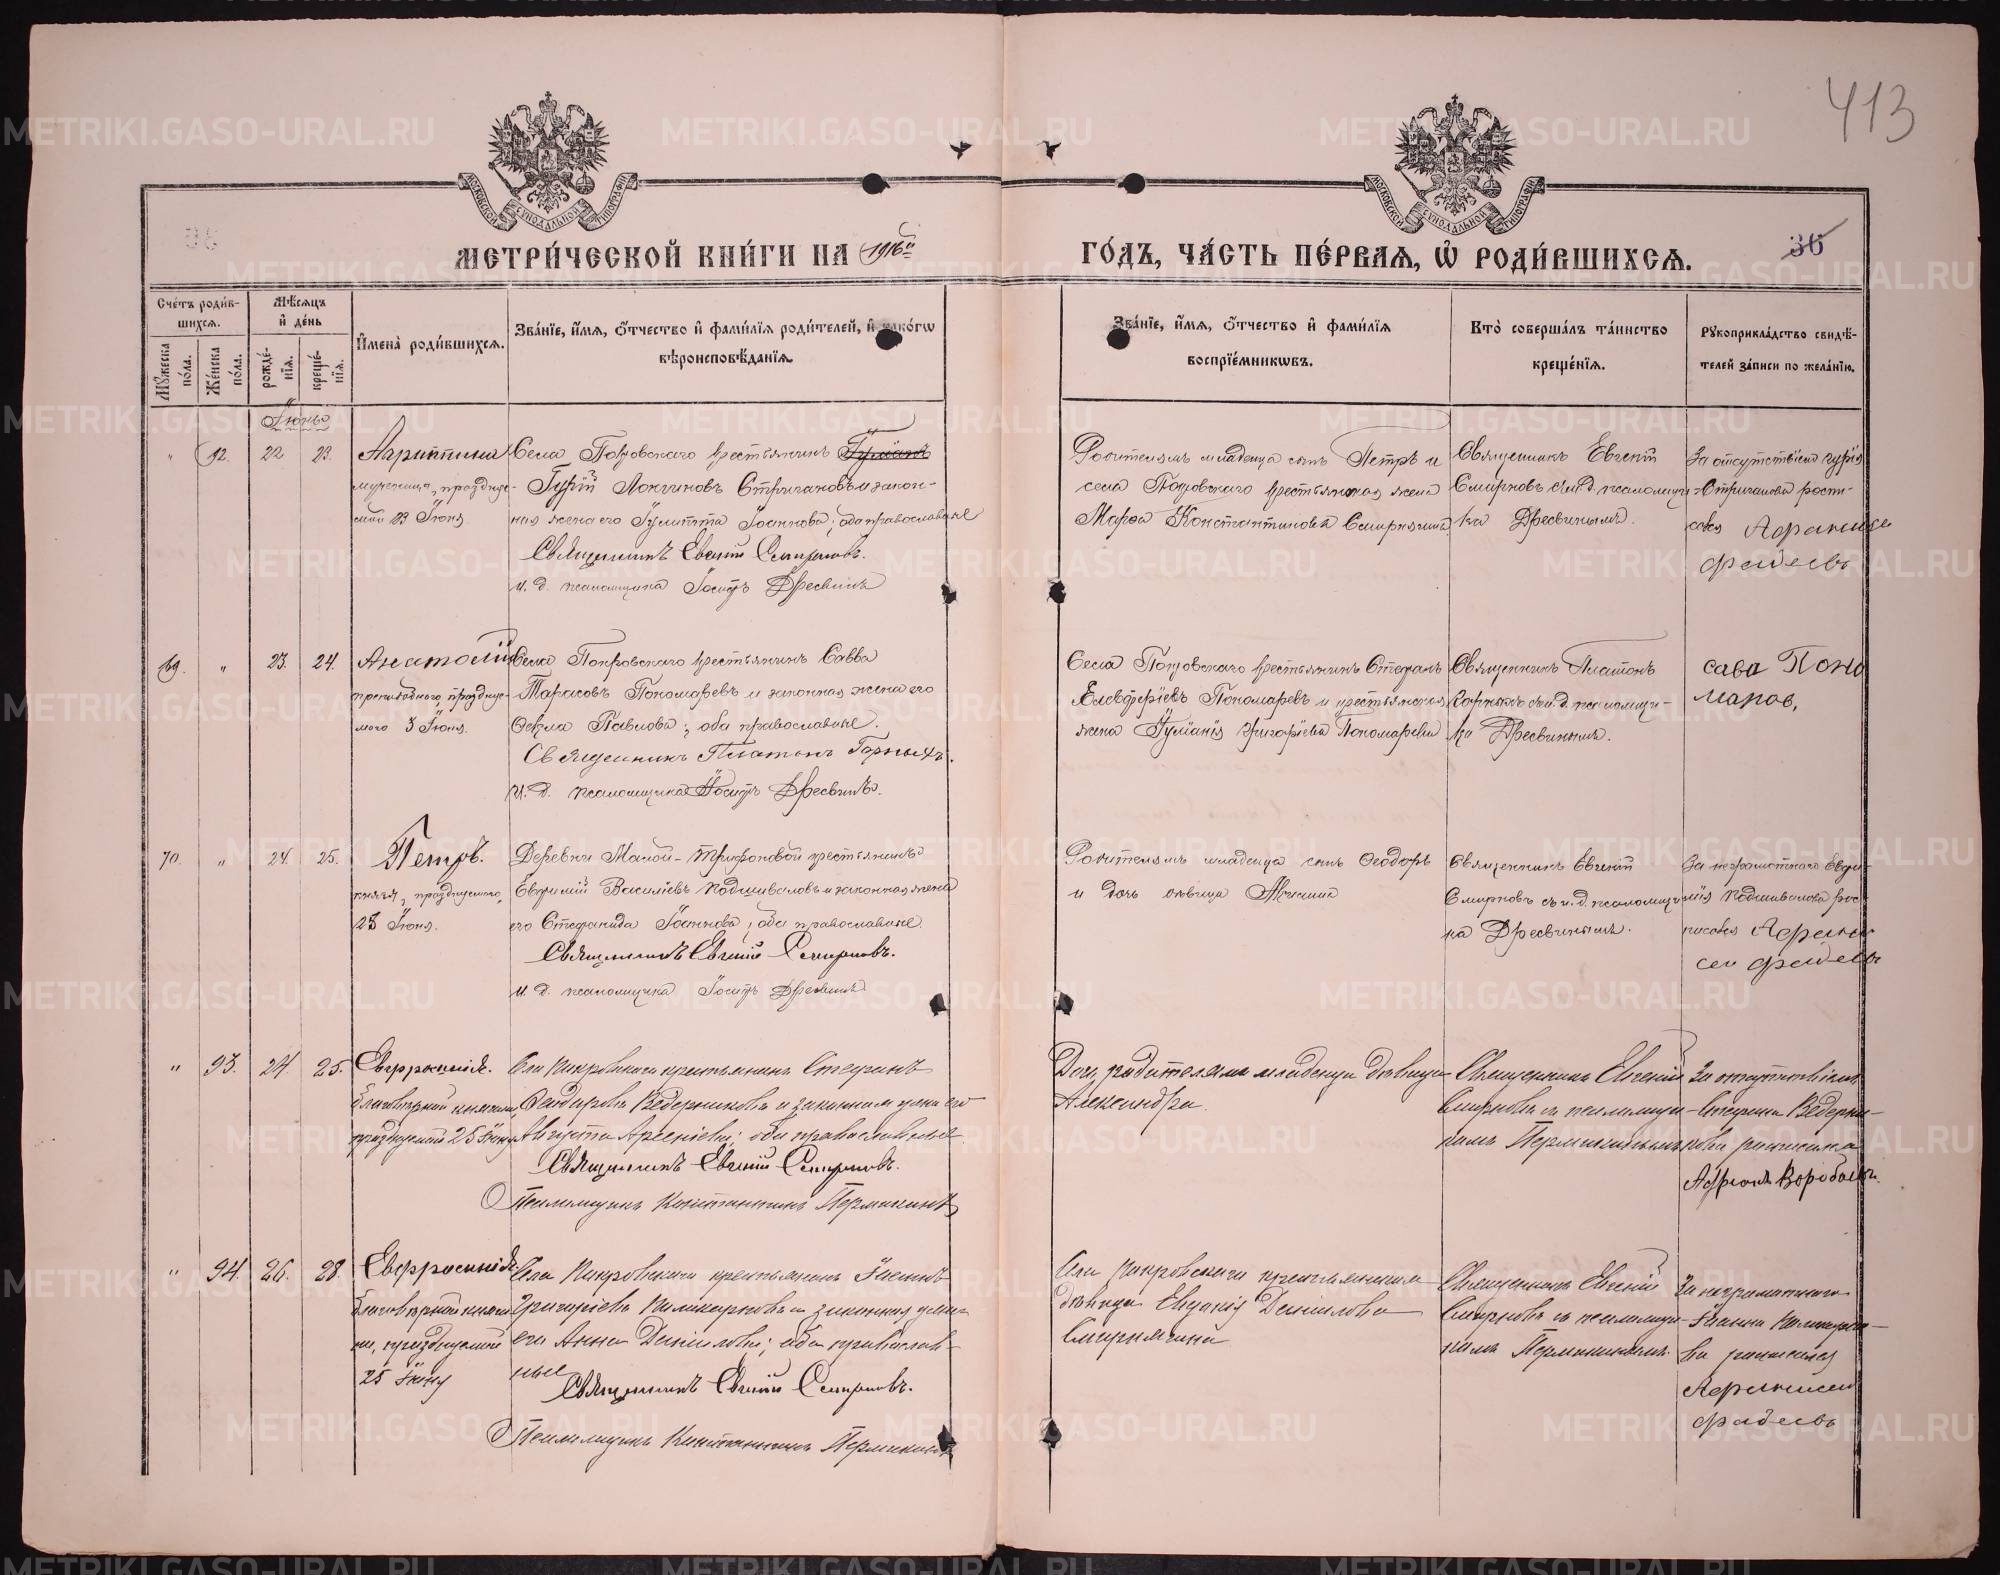 413
36
МОСКОВСКОЙ СѴНОДАЛЬНОЙ ТИПОГРАФІИ
МОСКОВСКОЙ СѴНОДАЛЬНОЙ ТИПОГРАФІИ
МЕТРИ́ЧЕСКОЙ КНИ́ГИ НА 1916й ГО́ДЪ, ЧА́СТЬ ПЕ́РВАЯ, Ѡ РОДИ́ВШИХСЯ.
Сче́тъ роди́в-
шихся.
Мѣ́сяцъ
и де́нь
Му́жеска по́ла.
Же́нска по́ла.
рожде́нїя.
креще́нїя.
Имена̀ роди́вшихся.
Зва́нїе, и́мя, о́тчество и фами́лїя роди́телей, и како́гѡ
вѣроисповѣ́данїя.
Зва́нїе, и́мя, о́тчество и фами́лїя
воспрїе́мникѡвъ.
Кто̀ соверша́лъ та́инство
креще́нїя.
Рукоприкла́дство свидѣ́-
телей за́писи по жела́нїю.
Іюнь
" 12. 22 23. Агриппина
мученица, праздуе-
мой 23 Іюня.
Села Покровскаго крестьянинъ
Гурій Логгиновъ Стригановъ и закон-
ная жена его Іулитта Іоаннова; оба православные
Священникъ Евгеній Смирновъ.
И. д. псаломщика Іосифъ Дресвинъ
Родителямъ младенца сынъ Петръ и
села Покровскаго крестьянская жена
Марѳа Константинова Смирнягина.
Священникъ Евгеній
Смирновъ съ и. д. псаломщи-
ка Дресвинымъ.
За отсутствіем Гурія
Стриганова роспи-
сался
фадеевъ
69. " 23. 24. Анатолій
преподобнаго, праздуе-
маго 3 Іюля.
Села Покровскаго крестьянинъ Савва
Тарасовъ Пономаревъ и законная жена его
Ѳекла Павлова; оба православные.
Священникъ Платонъ Горныхъ.
И. д. псаломщика Іосифъ Дресвинъ.
Села Покровскаго крестьянинъ Стефанъ
Елевферіевъ Пономаревъ и крестьянская
жена Іуліанія Григоріева Пономарева
Священникъ Платонъ
Горныхъ съ и. д. псаломщи-
ка Дресвинымъ.
сава Поно
маров,
70. " 24. 25. Петръ.
князя, празднуемаго
25 Іюня.
Деревни Малой-Трифоновой крестьянинъ
Евфимій Василіевъ Подшиваловъ и законная жена
его Стефанида Іоаннова; оба православные.
Священникъ Евгеній Смирновъ.
И. д. псаломщика Іосифъ Дресвинъ
Родителямъ младенца сынъ Ѳеодоръ
и дочь дѣвица
Священникъ Евгеній
Смирновъ съ и. д. псаломщи-
ка Дресвинымъ.
За неграмотнаго Евфи-
мія Подшивалова рос-
писался
фадеевъ
" 93. 24. 25. Евфросинія.
Благовѣрной княгини,
празднуемой 25 Іюня
Села Покровскаго крестьянинъ Стефанъ
Ѳеодоровъ Ведерниковъ и законная жена его
Августа Арсеніева; оба православные.
Священникъ Евгеній Смирновъ.
Псаломщикъ Константинъ Пермикинъ
Дочь родителями младенца дѣвица
Александра.
Священникъ Евгеній
Смирновъ съ псаломщи-
комъ Пермикинымъ
За отсутствіемъ
Стефана Ведерни-
кова росписался
Афонъ Воробьевъ.
" 94. 26. 28. Евфросинія
благовѣрной княги-
ни, празднуемой
25 Іюня
Села Покровскаго крестьянинъ Іоаннъ
Григоріевъ Поликарповъ и законная жена
его Анна Даніилова; оба православ-
ные
Священникъ Евгеній Смирновъ.
Псаломщикъ Константинъ Пермикинъ
Села Покровскаго крестьянская
дѣвица Евдокія Даніилова
Смирнягина
Священникъ Евгеній
Смирновъ съ псаломщи-
комъ Пермикинымъ.
За неграмотнаго
Іоанна Поликарпо-
ва росписался
фадеевъ
METRIKI.GASO-URAL.RU